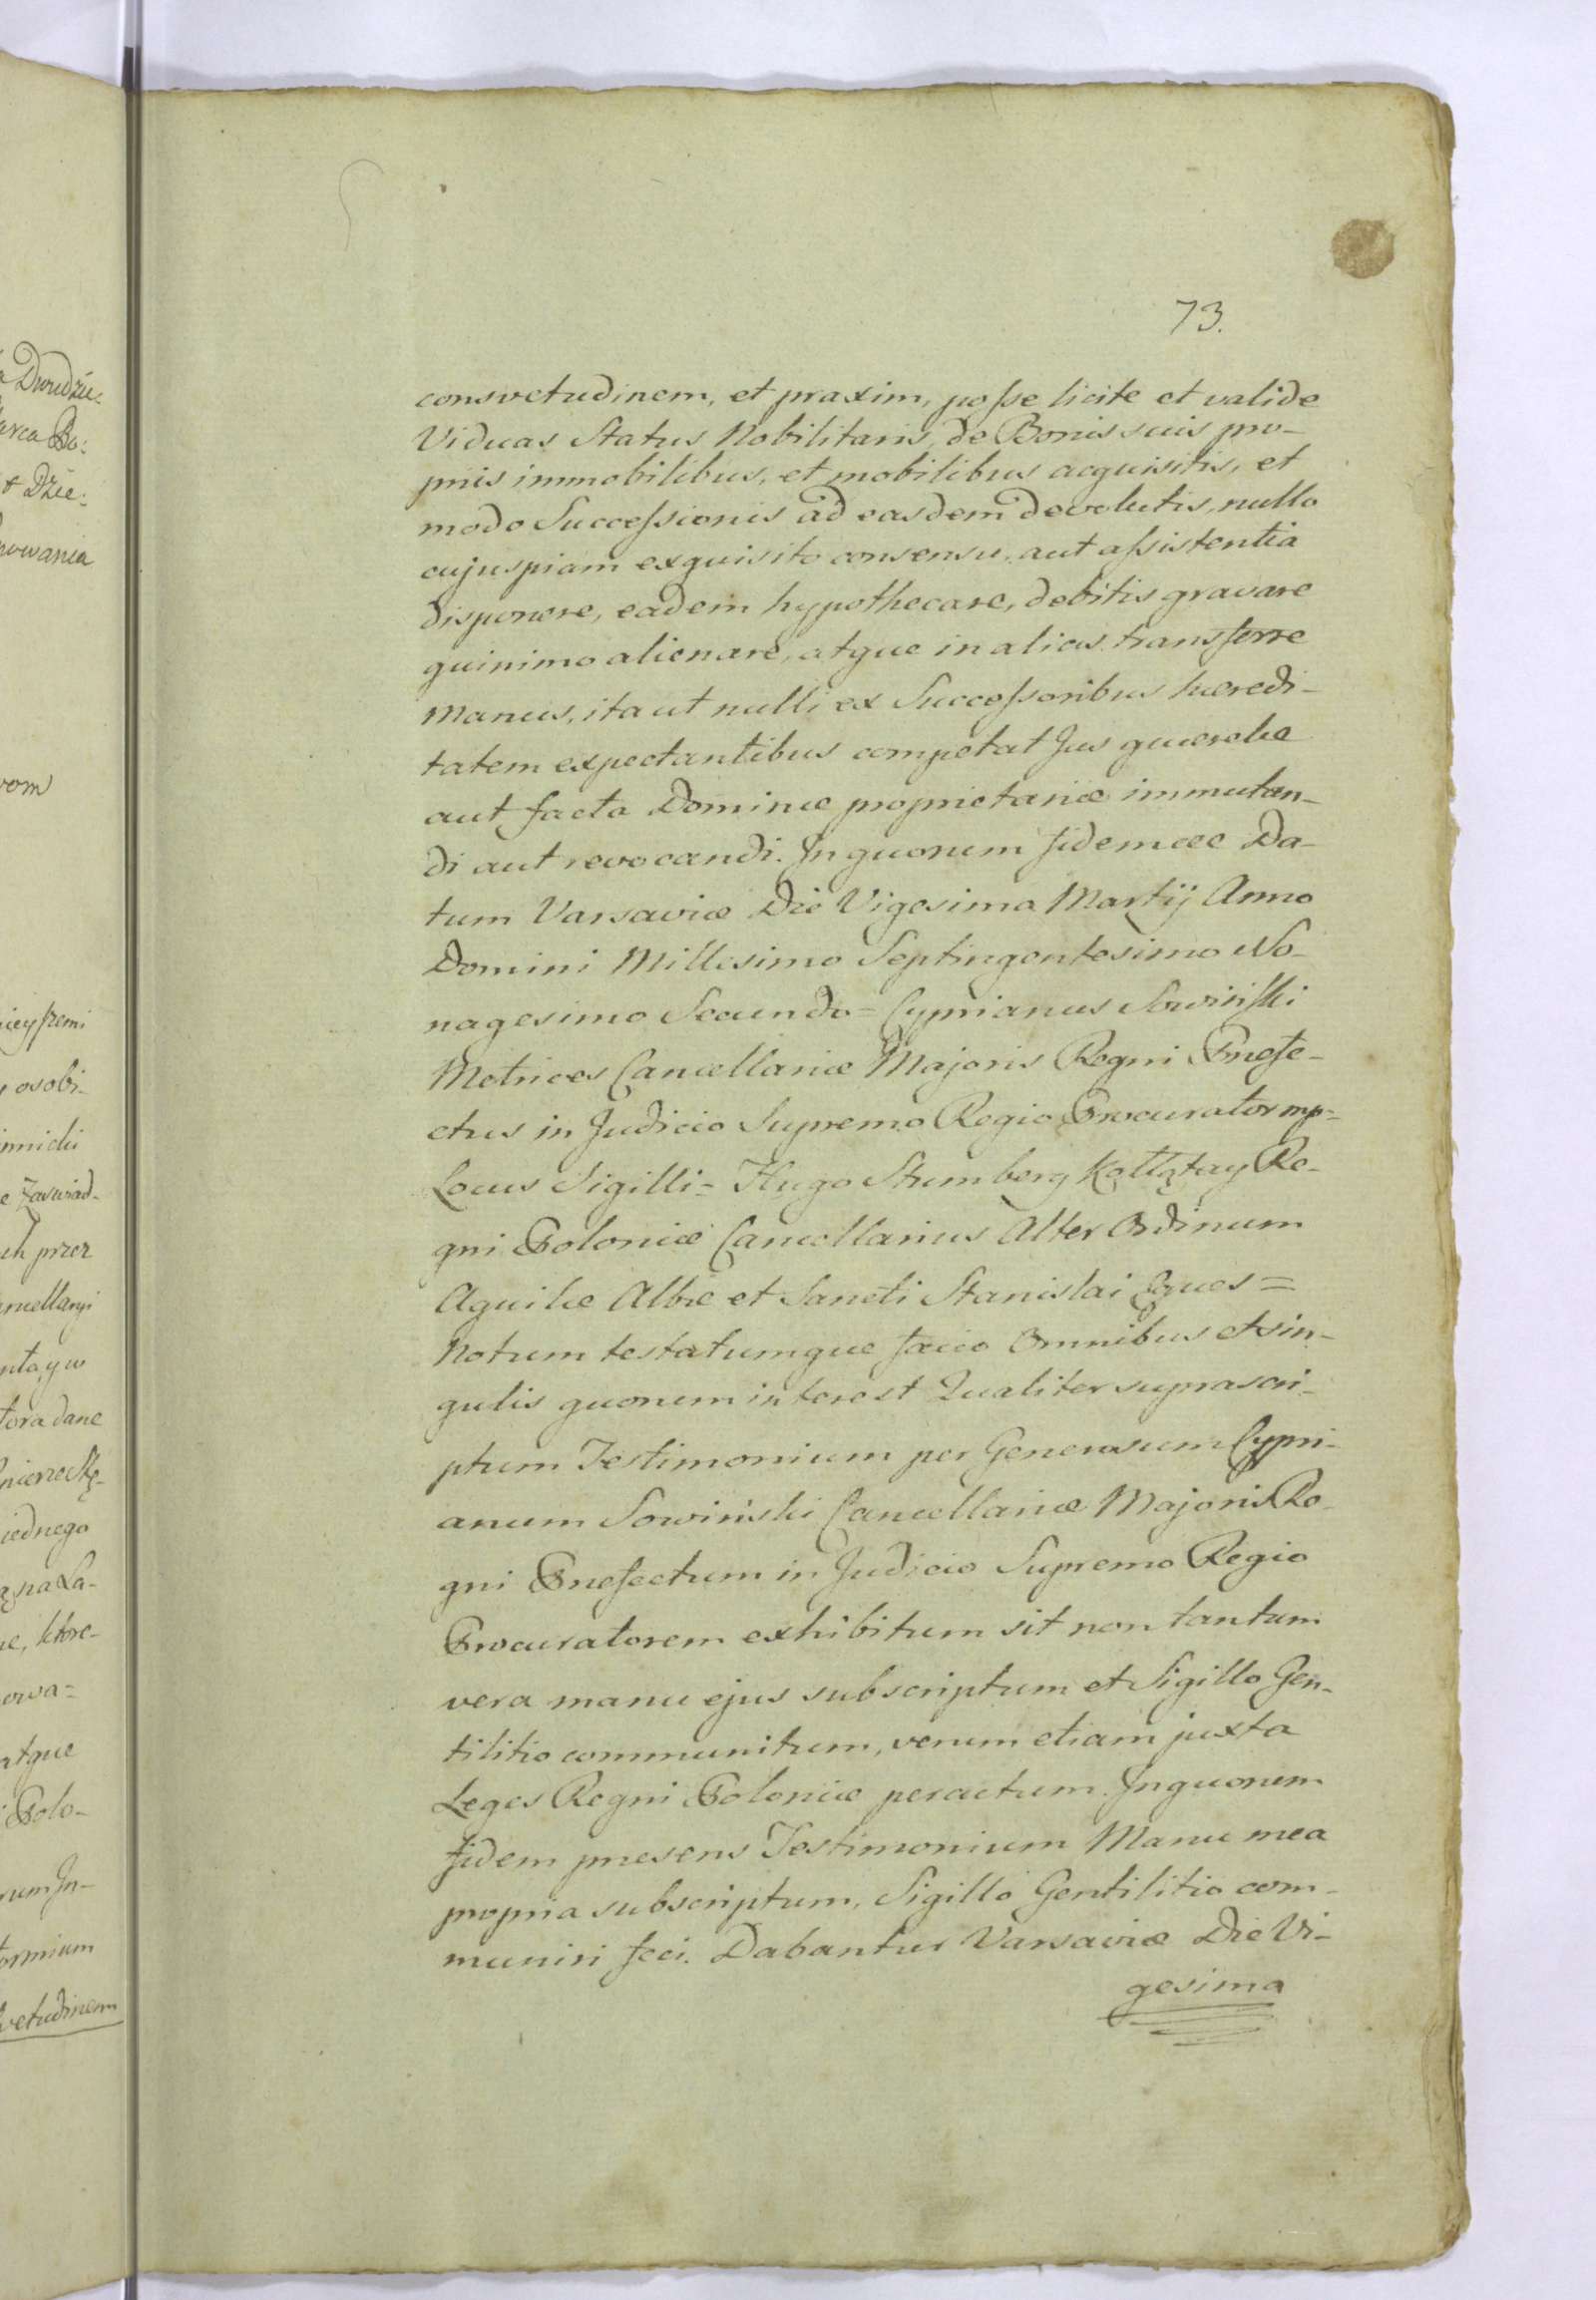 73.
consvetudinem, et praxim, posse licite et valide
Viduas Status Nobilitaris, de Bonis suis pro-
priis immobilibus, et mobilibus acquisitis, et
modo Successionis ad easdem devolutis, nullo
cujuspiam exquisito consensu, aut assistentia
disponere, eadem hypothecare, debitis gravare
quinimo alienare, atque in alias transferre
Manus, ita ut nulli ex Successoribus hæredi-
tatem expectantibus competat Jus querelæ
aut facta Dominæ proprietariæ immutan-
di aut revocandi. In quorum fidem ac Da-
tum Varsaviæ Die Vigesima Martij Anno
Domini Millesimo Septingentesimo No-
nagesimo Secundo = Cyprianus Sowiński
Metrices Cancellariæ Majoris Regni Præfe-
ctus in Judicio Supremo Regio Procurator mp-
Locus Sigilli = Hugo Stumberg Kołłątay Re-
gni Poloniæ Cancellarius Alter Ordinum
Aquilæ Albæ et Sancti Stanislai Eques =
Notum testatumque facio Omnibus et sin-
gulis quorum interest Qualiter suprascri-
ptum Testimonium per Generosum Cypri-
anum Sowiński Cancellariæ Majoris Re-
gni Præfectum in Judicio Supremo Regio
Procuratorem exhibitum sit non tantum
vera manu ejus subscriptum et Sigillo Gen-
tilitio communitum, verum etiam juxta
Leges Regni Poloniæ peractum. In quorum
fidem præsens Testimonium Manu mea
propria subscriptum, Sigillo Gentilitio com-
muniri feci. Dabantur Varsaviæ Die Vi-
gesima